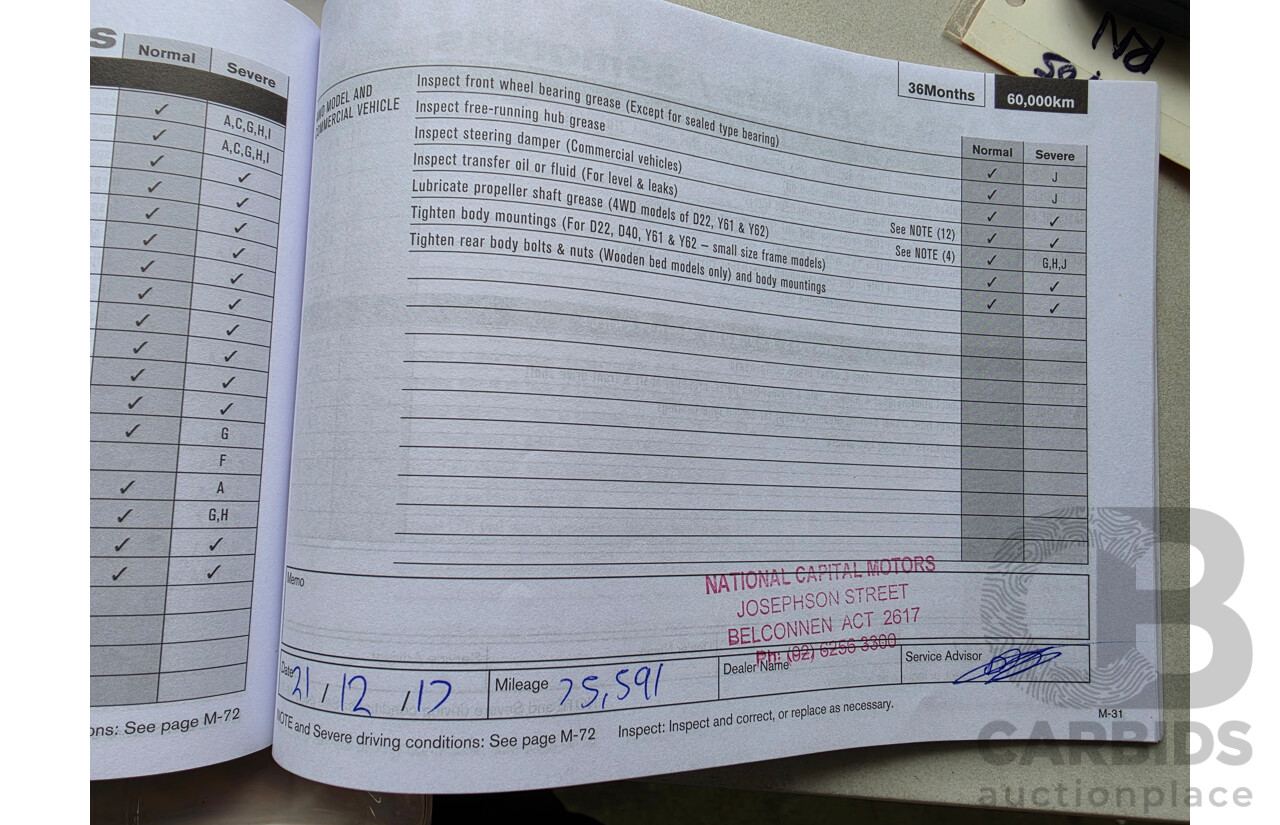 s
Normal
Severe
✓ A,C,G,H,I
✓ A,C,G,H,I
✓ ✓
✓ ✓
✓ ✓
✓ ✓
✓ ✓
✓ ✓
✓ ✓
✓ ✓
✓ ✓
✓ ✓
✓ G
F
✓ A
✓ G,H
✓ ✓
✓ ✓
ons: See page M-72
RN
36Months
60,000km
Normal
Severe
MODEL AND
COMMERCIAL VEHICLE
Inspect front wheel bearing grease (Except for sealed type bearing) ✓ J
Inspect free-running hub grease ✓ J
Inspect steering damper (Commercial vehicles) ✓ ✓
Inspect transfer oil or fluid (For level & leaks) ✓ ✓
Lubricate propeller shaft grease (4WD models of D22, Y61 & Y62) See NOTE (12) ✓ G,H,J
Tighten body mountings (For D22, D40, Y61 & Y62 – small size frame models) See NOTE (4) ✓ ✓
Tighten rear body bolts & nuts (Wooden bed models only) and body mountings ✓ ✓
Memo
NATIONAL CAPITAL MOTORS
JOSEPHSON STREET
BELCONNEN ACT 2617
Ph: (02) 6256 3300
Date 21 / 12 / 17
Mileage 75,591
Dealer Name
Service Advisor
NOTE and Severe driving conditions: See page M-72
Inspect: Inspect and correct, or replace as necessary.
M-31
CB
CARBIDS
auctionplace